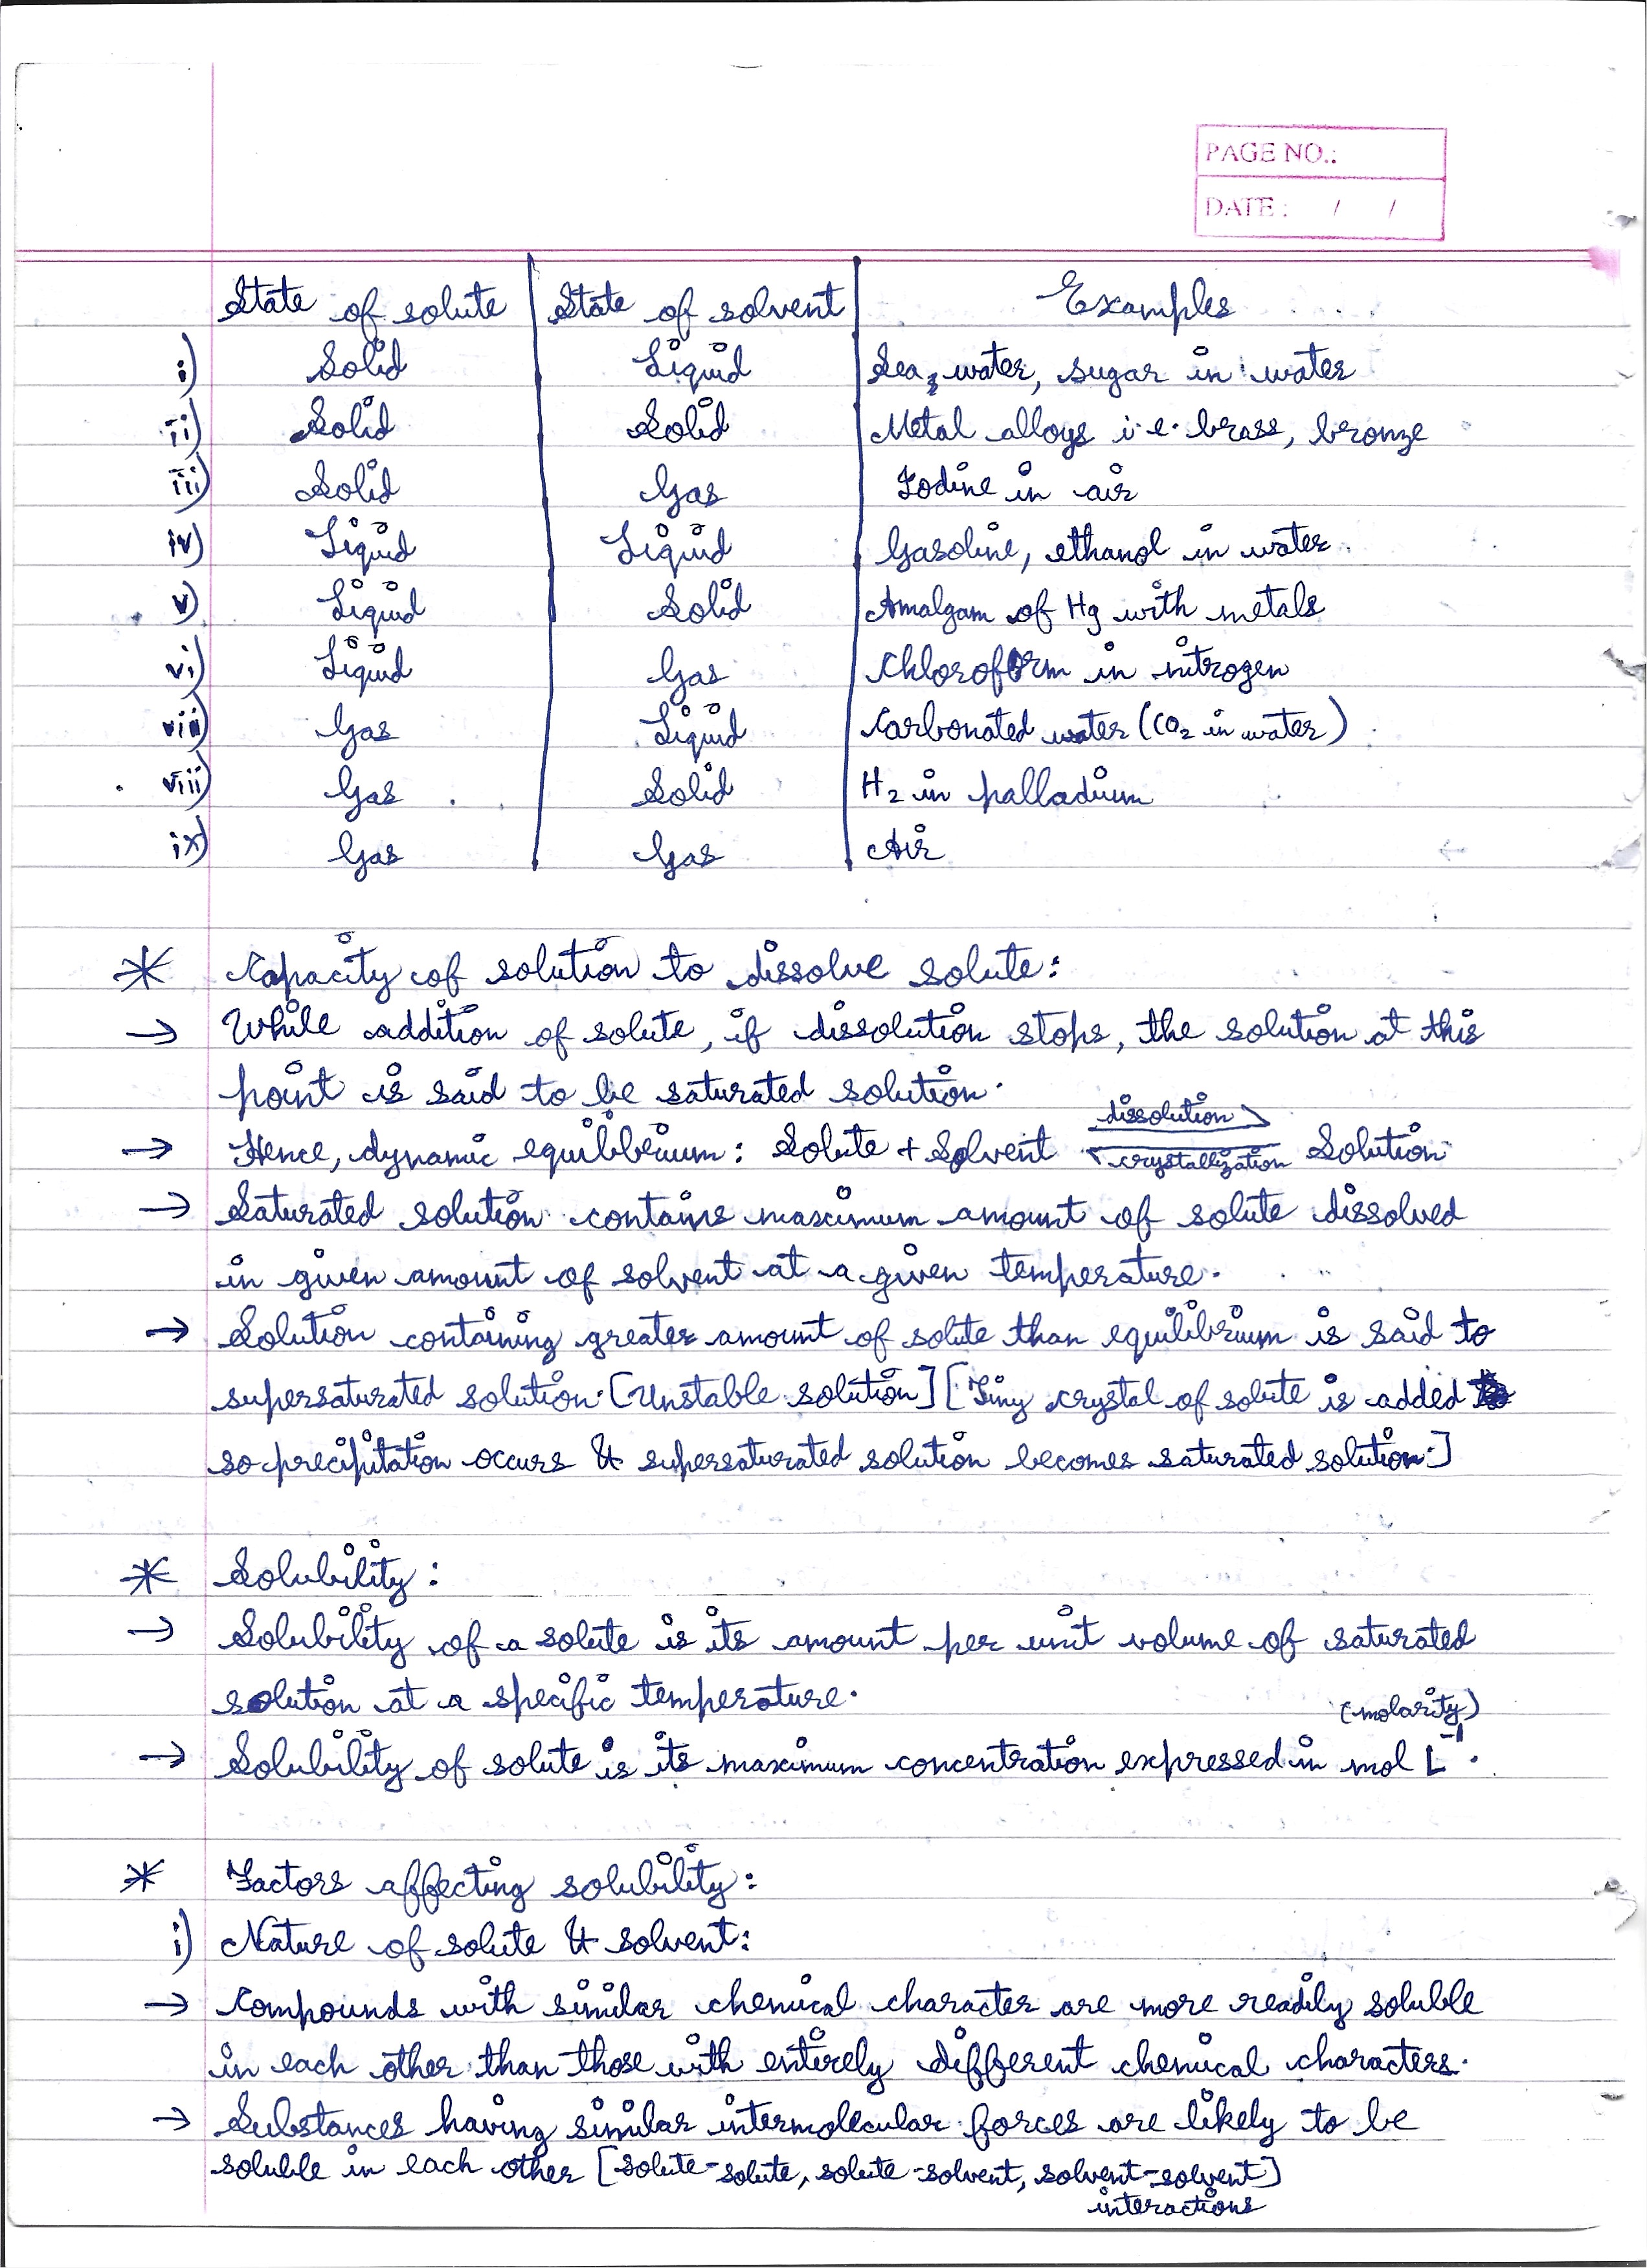 PAGE NO.:
DATE : / /
State of solute | State of solvent | Examples
i) Solid | Liquid | Sea water, sugar in water
ii) Solid | Solid | Metal alloys i.e. brass, bronze
iii) Solid | Gas | Iodine in air
iv) Liquid | Liquid | Gasoline, ethanol in water
v) Liquid | Solid | Amalgam of Hg with metals
vi) Liquid | Gas | Chloroform in nitrogen
vii) Gas | Liquid | Carbonated water (CO₂ in water)
viii) Gas | Solid | H₂ in palladium
ix) Gas | Gas | Air
* Capacity of solution to dissolve solute:
→ While addition of solute, if dissolution stops, the solution at this
point is said to be saturated solution.
→ Hence, dynamic equilibrium: Solute + Solvent dissolution ⇌ crystallization Solution
→ Saturated solution contains maximum amount of solute dissolved
in given amount of solvent at a given temperature.
→ Solution containing greater amount of solute than equilibrium is said to
supersaturated solution. [Unstable solution] [Tiny crystal of solute is added
so precipitation occurs & supersaturated solution becomes saturated solution.]
* Solubility:
→ Solubility of a solute is its amount per unit volume of saturated
solution at a specific temperature.
(molarity)
→ Solubility of solute is its maximum concentration expressed in mol L⁻¹.
* Factors affecting solubility:
i) Nature of solute & solvent:
→ Compounds with similar chemical character are more readily soluble
in each other than those with entirely different chemical characters.
→ Substances having similar intermolecular forces are likely to be
soluble in each other [solute-solute, solute-solvent, solvent-solvent]
interactions